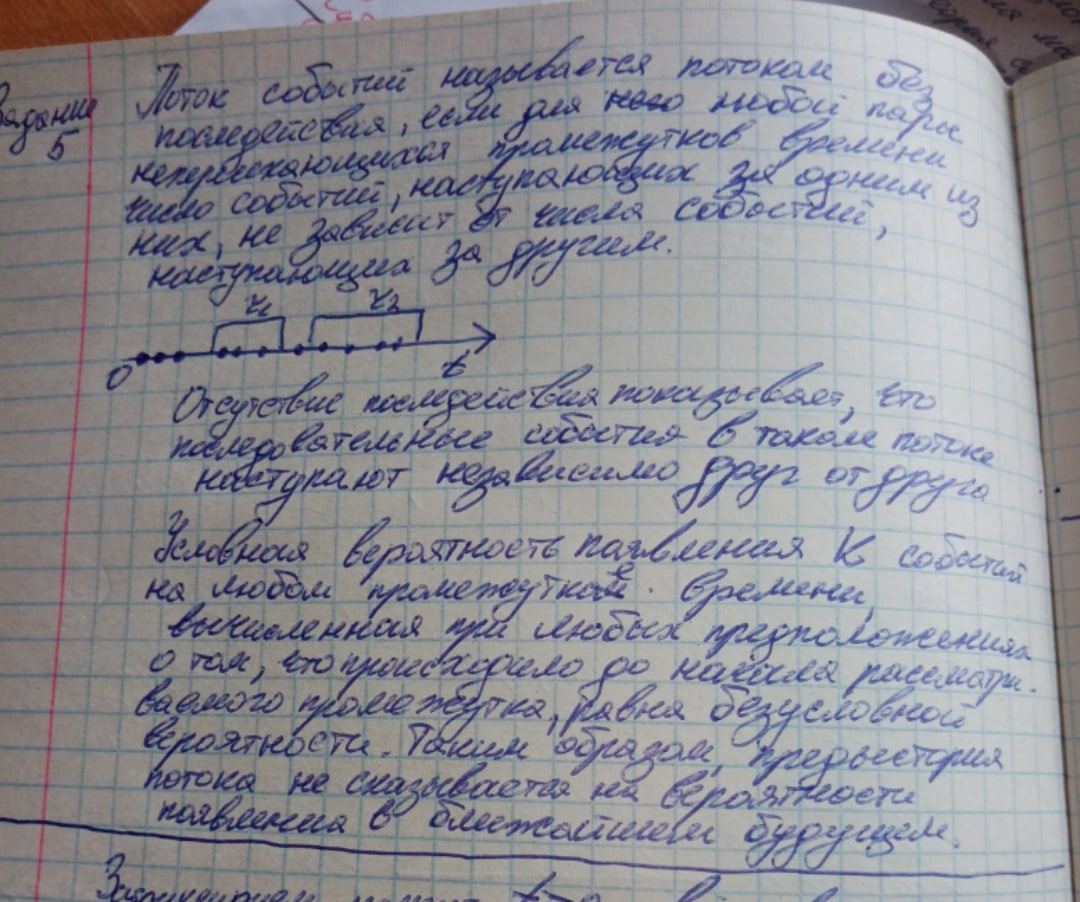 Задание
5
Поток событий называется потоком без
последействия, если для него любой пары
непересекающихся промежутков времени
число событий, наступающих за одним из
них, не зависит от числа событий,
наступающих за другим.
τ1 τ2
0 t
Отсутствие последействия показывает, что
последовательные события в таком потоке
наступают независимо друг от друга
Условная вероятность появления K событий
на любом промежутке времени,
вычисленная при любых предположениях
о том, что происходило до начала рассматри-
ваемого промежутка, равна безусловной
вероятности. Таким образом, предыстория
потока не сказывается на вероятности
появления в ближайшем будущем.